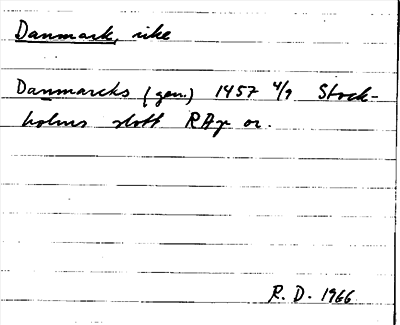 Danmark, rike
Danmarcks (gen.) 1457 4/9 Stock-
holms slott RAp or.
R. D. 1966